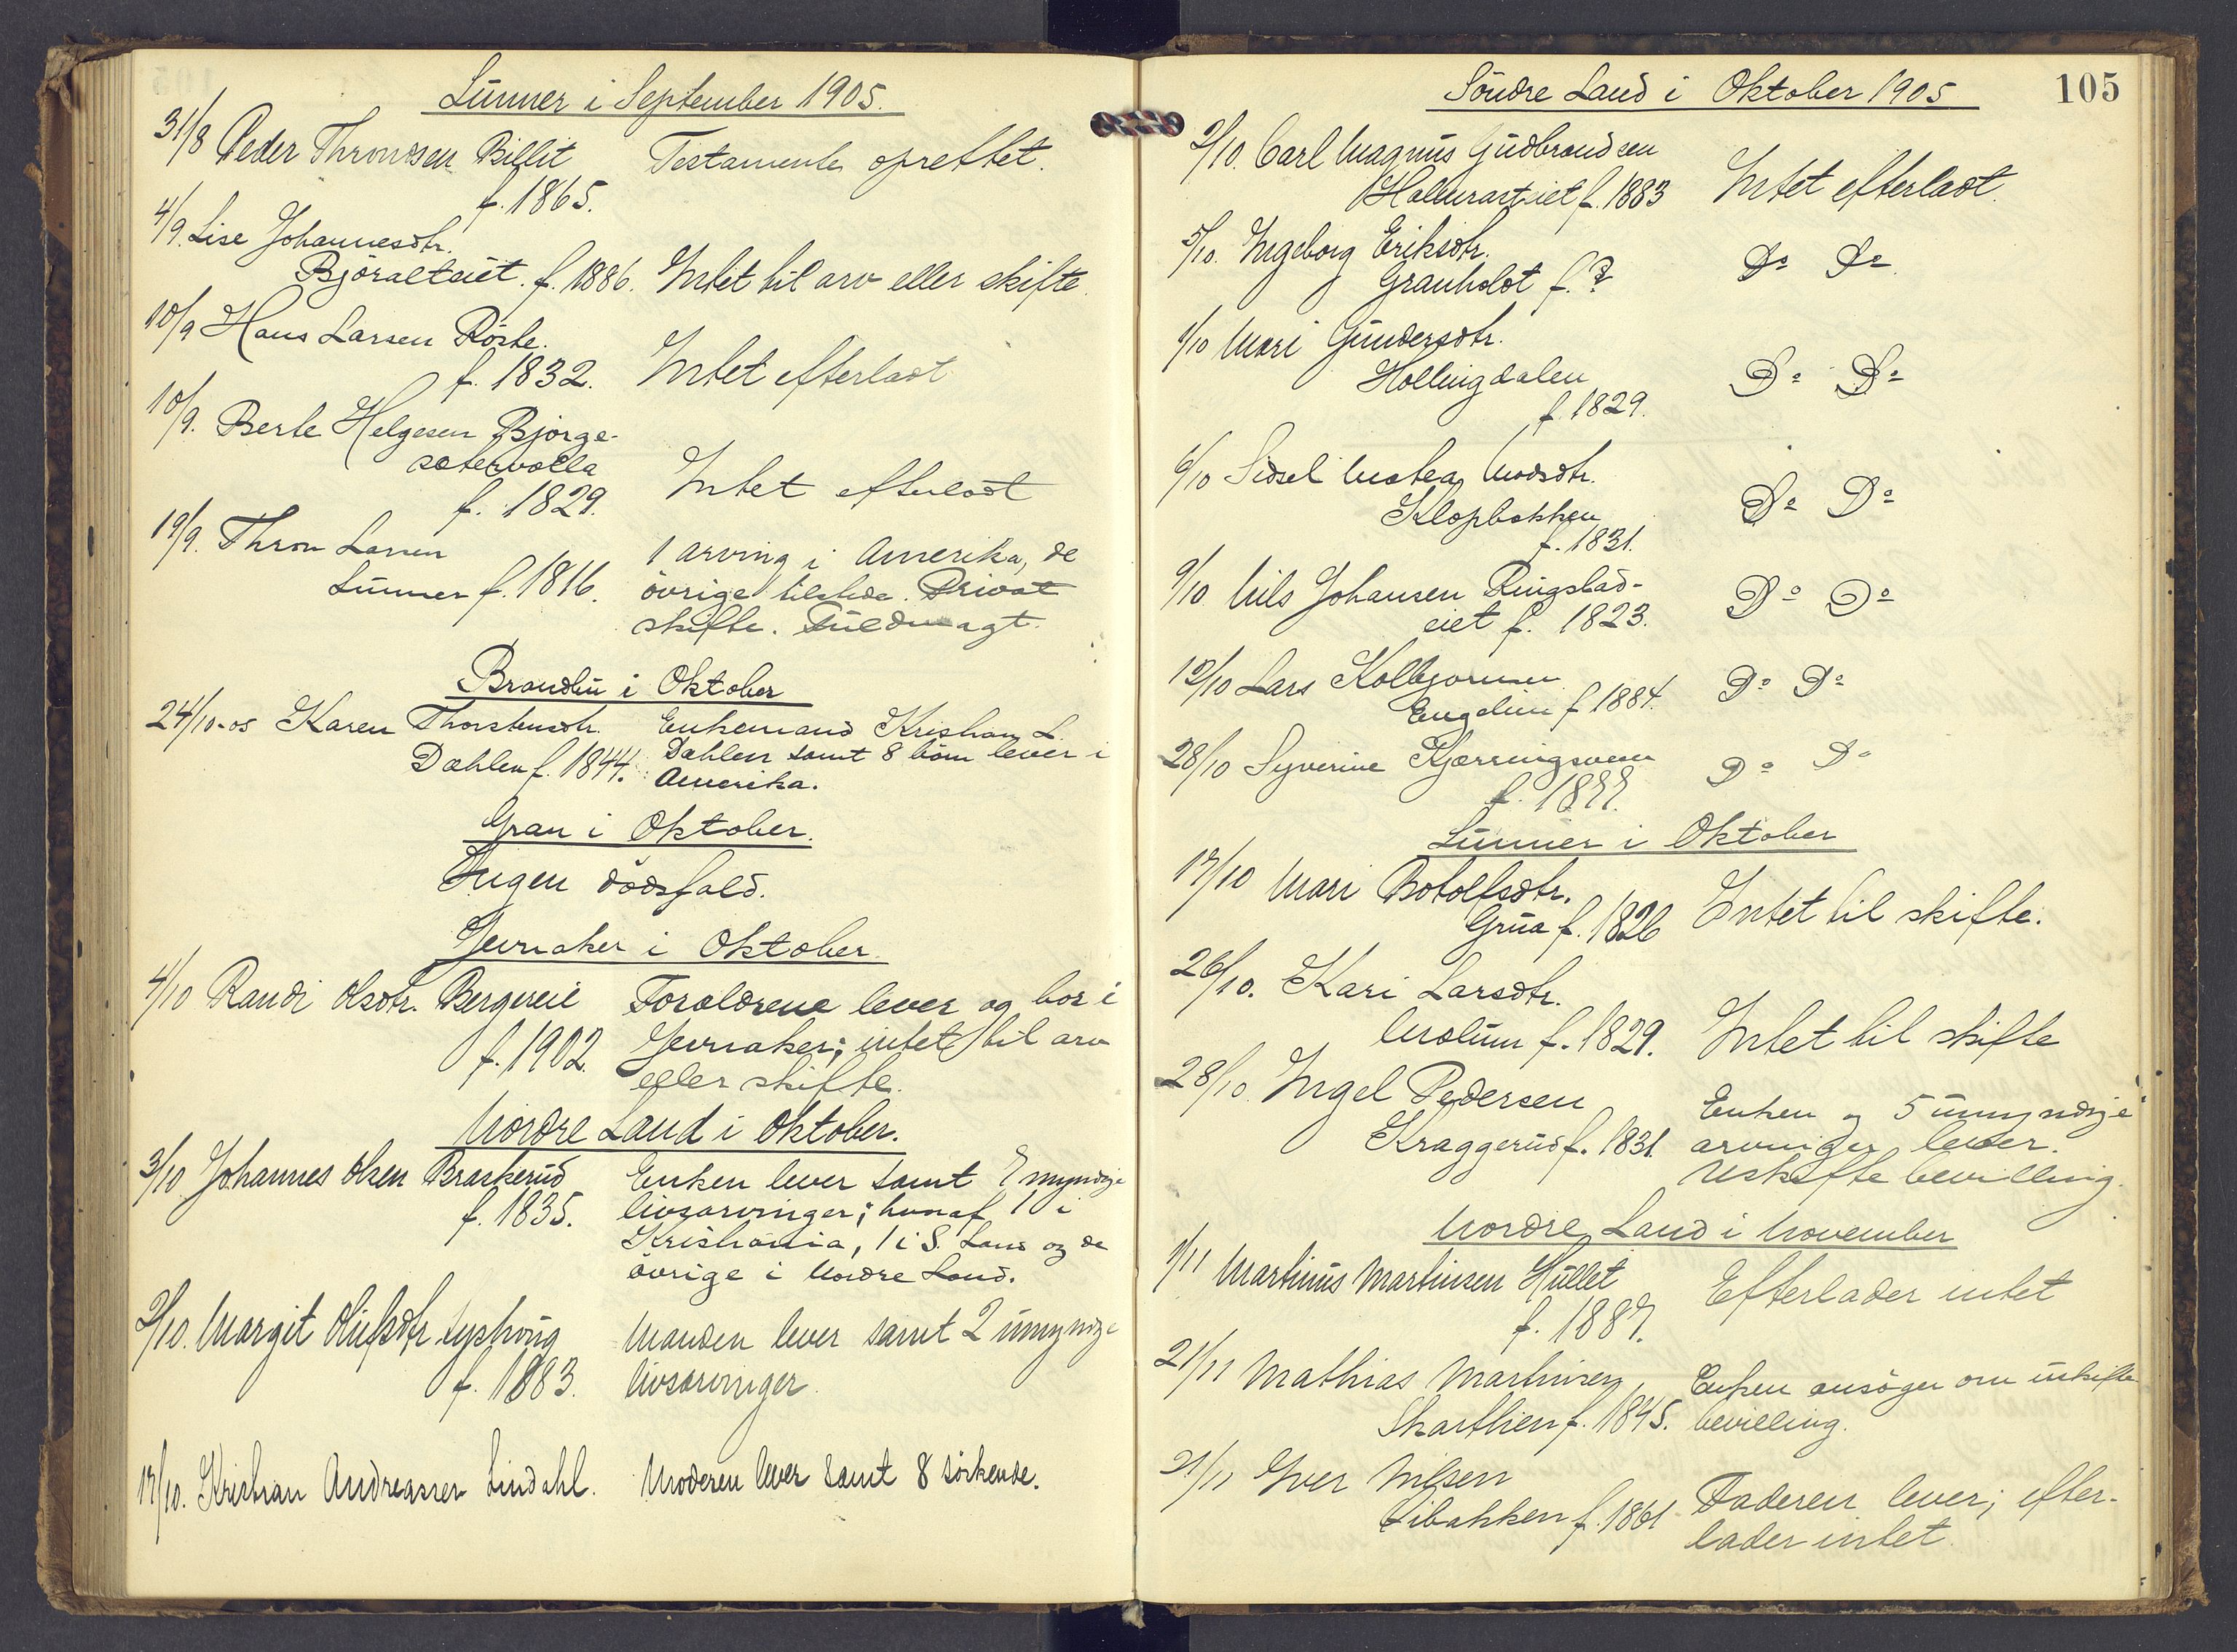 Lunner i September 1905.
31/8 Peder Thronsen Billit Testamente oprettet.
f. 1865.
4/9. Lise Johannesdtr.
f. 1886. Intet til arv eller skifte.
10/9 Hans Larsen Röste.
f. 1832. Intet efterladt
10/9. Berte Helgesen Bjørge-
sætervolla
f. 1829. Intet efterladt
19/9. Thron Larsen 1 arving i Amerika, de
Lunner f. 1816. övrige tilstede. Privat
skifte. Fuldmagt.
Brandbu i Oktober
24/10-05 Karen Thorstensdtr. Enkemand Kristian L.
Dæhlen f. 1844. Dæhlen samt 8 börn lever i
Amerika.
Gran i Oktober.
Ingen dödsfald.
Jevnaker i Oktober.
4/10 Randi Olsdtr. Bergereie Forældrene lever og bor i
f. 1902. Jevnaker; intet til arv
eller skifte.
Nordre Land i Oktober.
3/10 Johannes Olsen Braskerud Enken lever samt 7 myndige
f. 1835. livsarvinger; hvoraf 1 i
Kristiania, 1 i S. Land og de
övrige i Nordre Land.
2/10. Margit Olufsdtr. Manden lever samt 2 umyndige
f. 1883. livsarvinger.
17/10. Kristian Andreassen Lindahl. Moderen lever samt 8 söskende.
105
Söndre Land i Oktober 1905
2/10. Carl Magnus Gudbrandsen
f. 1883 Intet efterladt.
5/10. Ingeborg Eriksdtr.
Granholdt f. ? Do Do
1/10 Mari Gundersdtr.
Hollingdalen Do Do
f. 1829.
6/10 Sidsel Mathea Madsdtr.
Klopbakken Do Do
f. 1831.
9/10. Nils Johansen Ringstad-
eiet f. 1823. Do Do
12/10 Lars Kolbjørnsen
Engelien f. 1884. Do Do
28/10 Syverine Kjærringsveen
f. 1877. Do Do
Lunner i Oktober
17/10 Mari Botolfsdtr.
Grua f. 1826 Intet til skifte.
26/10. Kari Larsdtr.
Molum f. 1829. Intet til skifte
28/10. Ingel Pedersen Enken og 5 umyndige
Kraggerud f. 1831. arvinger lever.
Uskiftebevilling.
Nordre Land i November
1/11 Martinus Martinsen Hullet Efterlader intet
f. 1887.
21/11 Mathias Martinsen Enken ansöger om uskifte-
Skarthien f. 1845. bevilling.
21/11 Iver Nilsen
Libakken f. 1861 Faderen lever; efter-
lader intet.